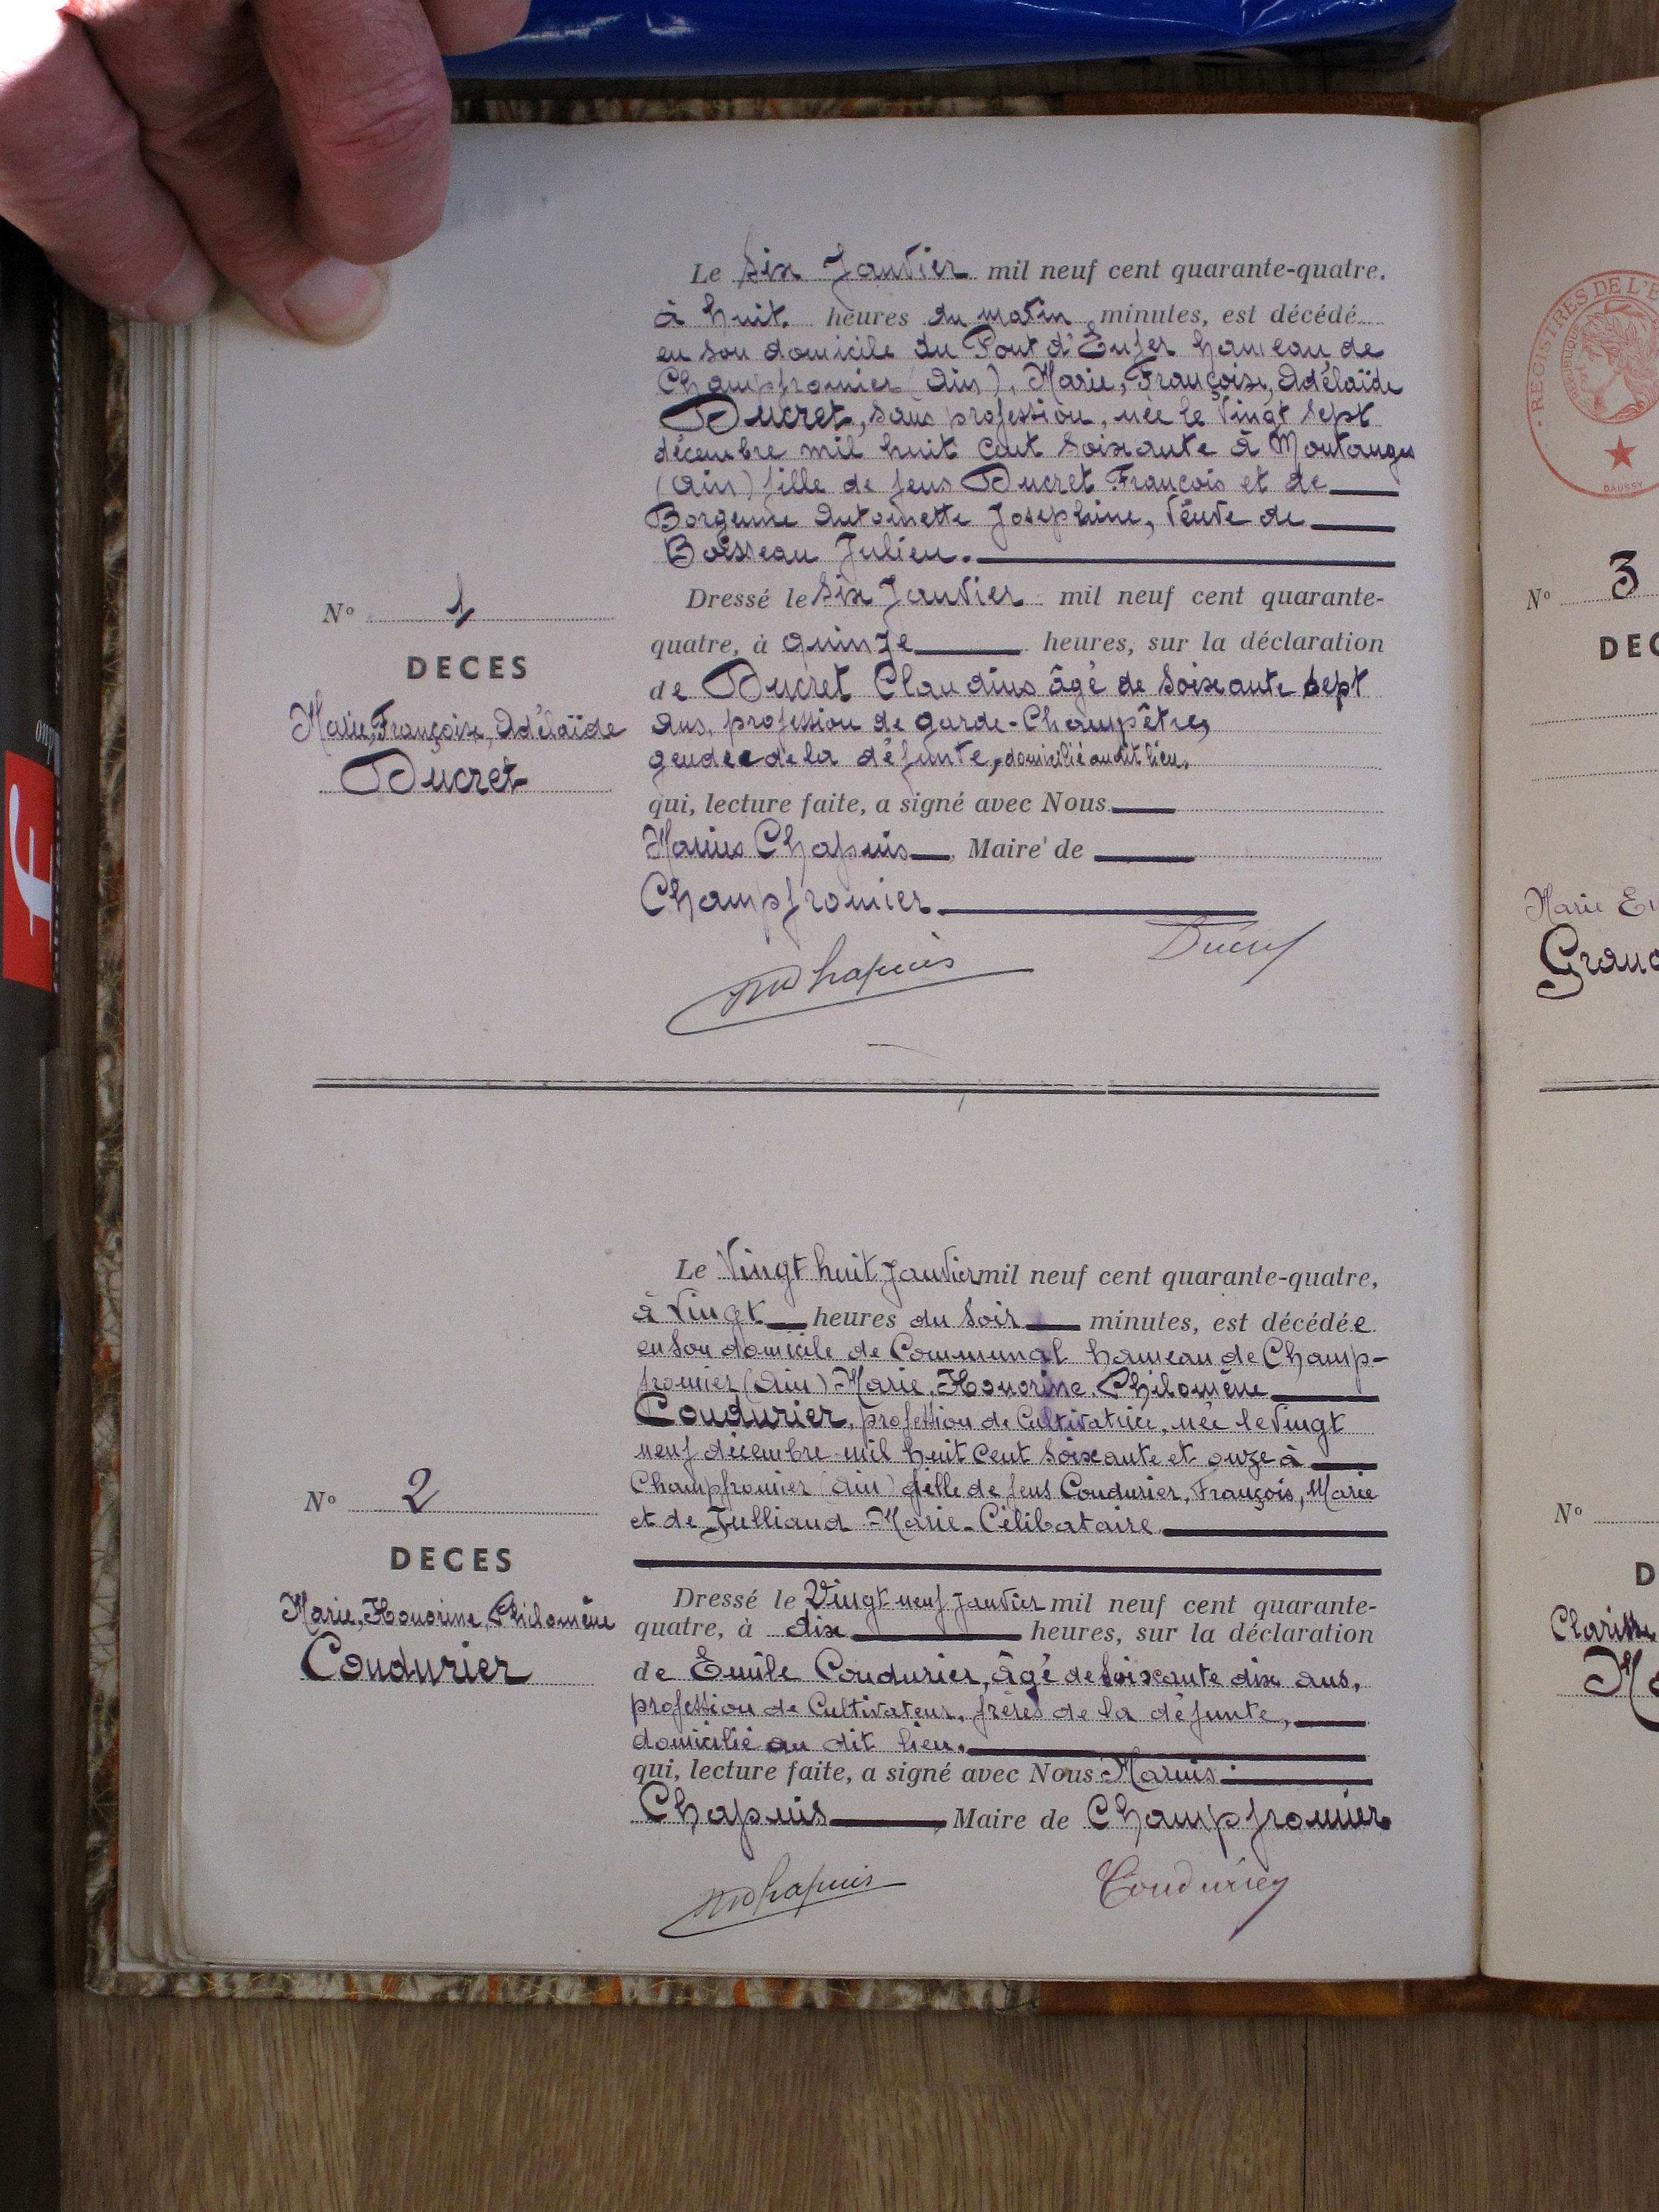 Le Six Janvier mil neuf cent quarante-quatre.
à huit heures du matin minutes, est décédé
en son domicile du Pont d'Enfer hameau de
Champfromier (Ain), Marie, Françoise, Adélaïde
Ducret, sans profession, née le Vingt sept
décembre mil huit cent soixante à Montanges
(Ain) fille de feus Ducret François et de
Borgenne Antoinette Joséphine, Veuve de
Boisseau Julien.
Nº 1
DECES
Marie, Françoise, Adélaïde
Ducret
Dressé le Six Janvier mil neuf cent quarante-
quatre, à quinze heures, sur la déclaration
de Ducret Claudius âgé de soixante sept
ans, profession de garde-Champêtre,
gendre de la défunte, domicilié au dit lieu.
qui, lecture faite, a signé avec Nous
Marius Chapuis, Maire de
Champfromier
MChapuis Ducret
Le Vingt huit Janvier mil neuf cent quarante-quatre,
à Vingt heures du soir minutes, est décédée
en son domicile de Communal hameau de Champ-
fromier (Ain) Marie, Honorine, Philomène
Coudurier, profession de Cultivatrice, née le Vingt
neuf décembre mil huit cent soixante et onze à
Champfromier (Ain) fille de feus Coudurier, François, Marie
et de Julliand Marie - Célibataire
Nº 2
DECES
Marie, Honorine, Philomène
Coudurier
Dressé le Vingt neuf Janvier mil neuf cent quarante-
quatre, à dix heures, sur la déclaration
de Emile Coudurier, âgé de soixante dix ans,
profession de Cultivateur, frères de la défunte,
domicilié au dit lieu.
qui, lecture faite, a signé avec Nous Marius
Chapuis, Maire de Champfromier
MChapuis Coudurier
REGISTRES DE L'É
DAUSSY
Nº 3
DEC
Marie
Grand
Nº
D
Clarisse